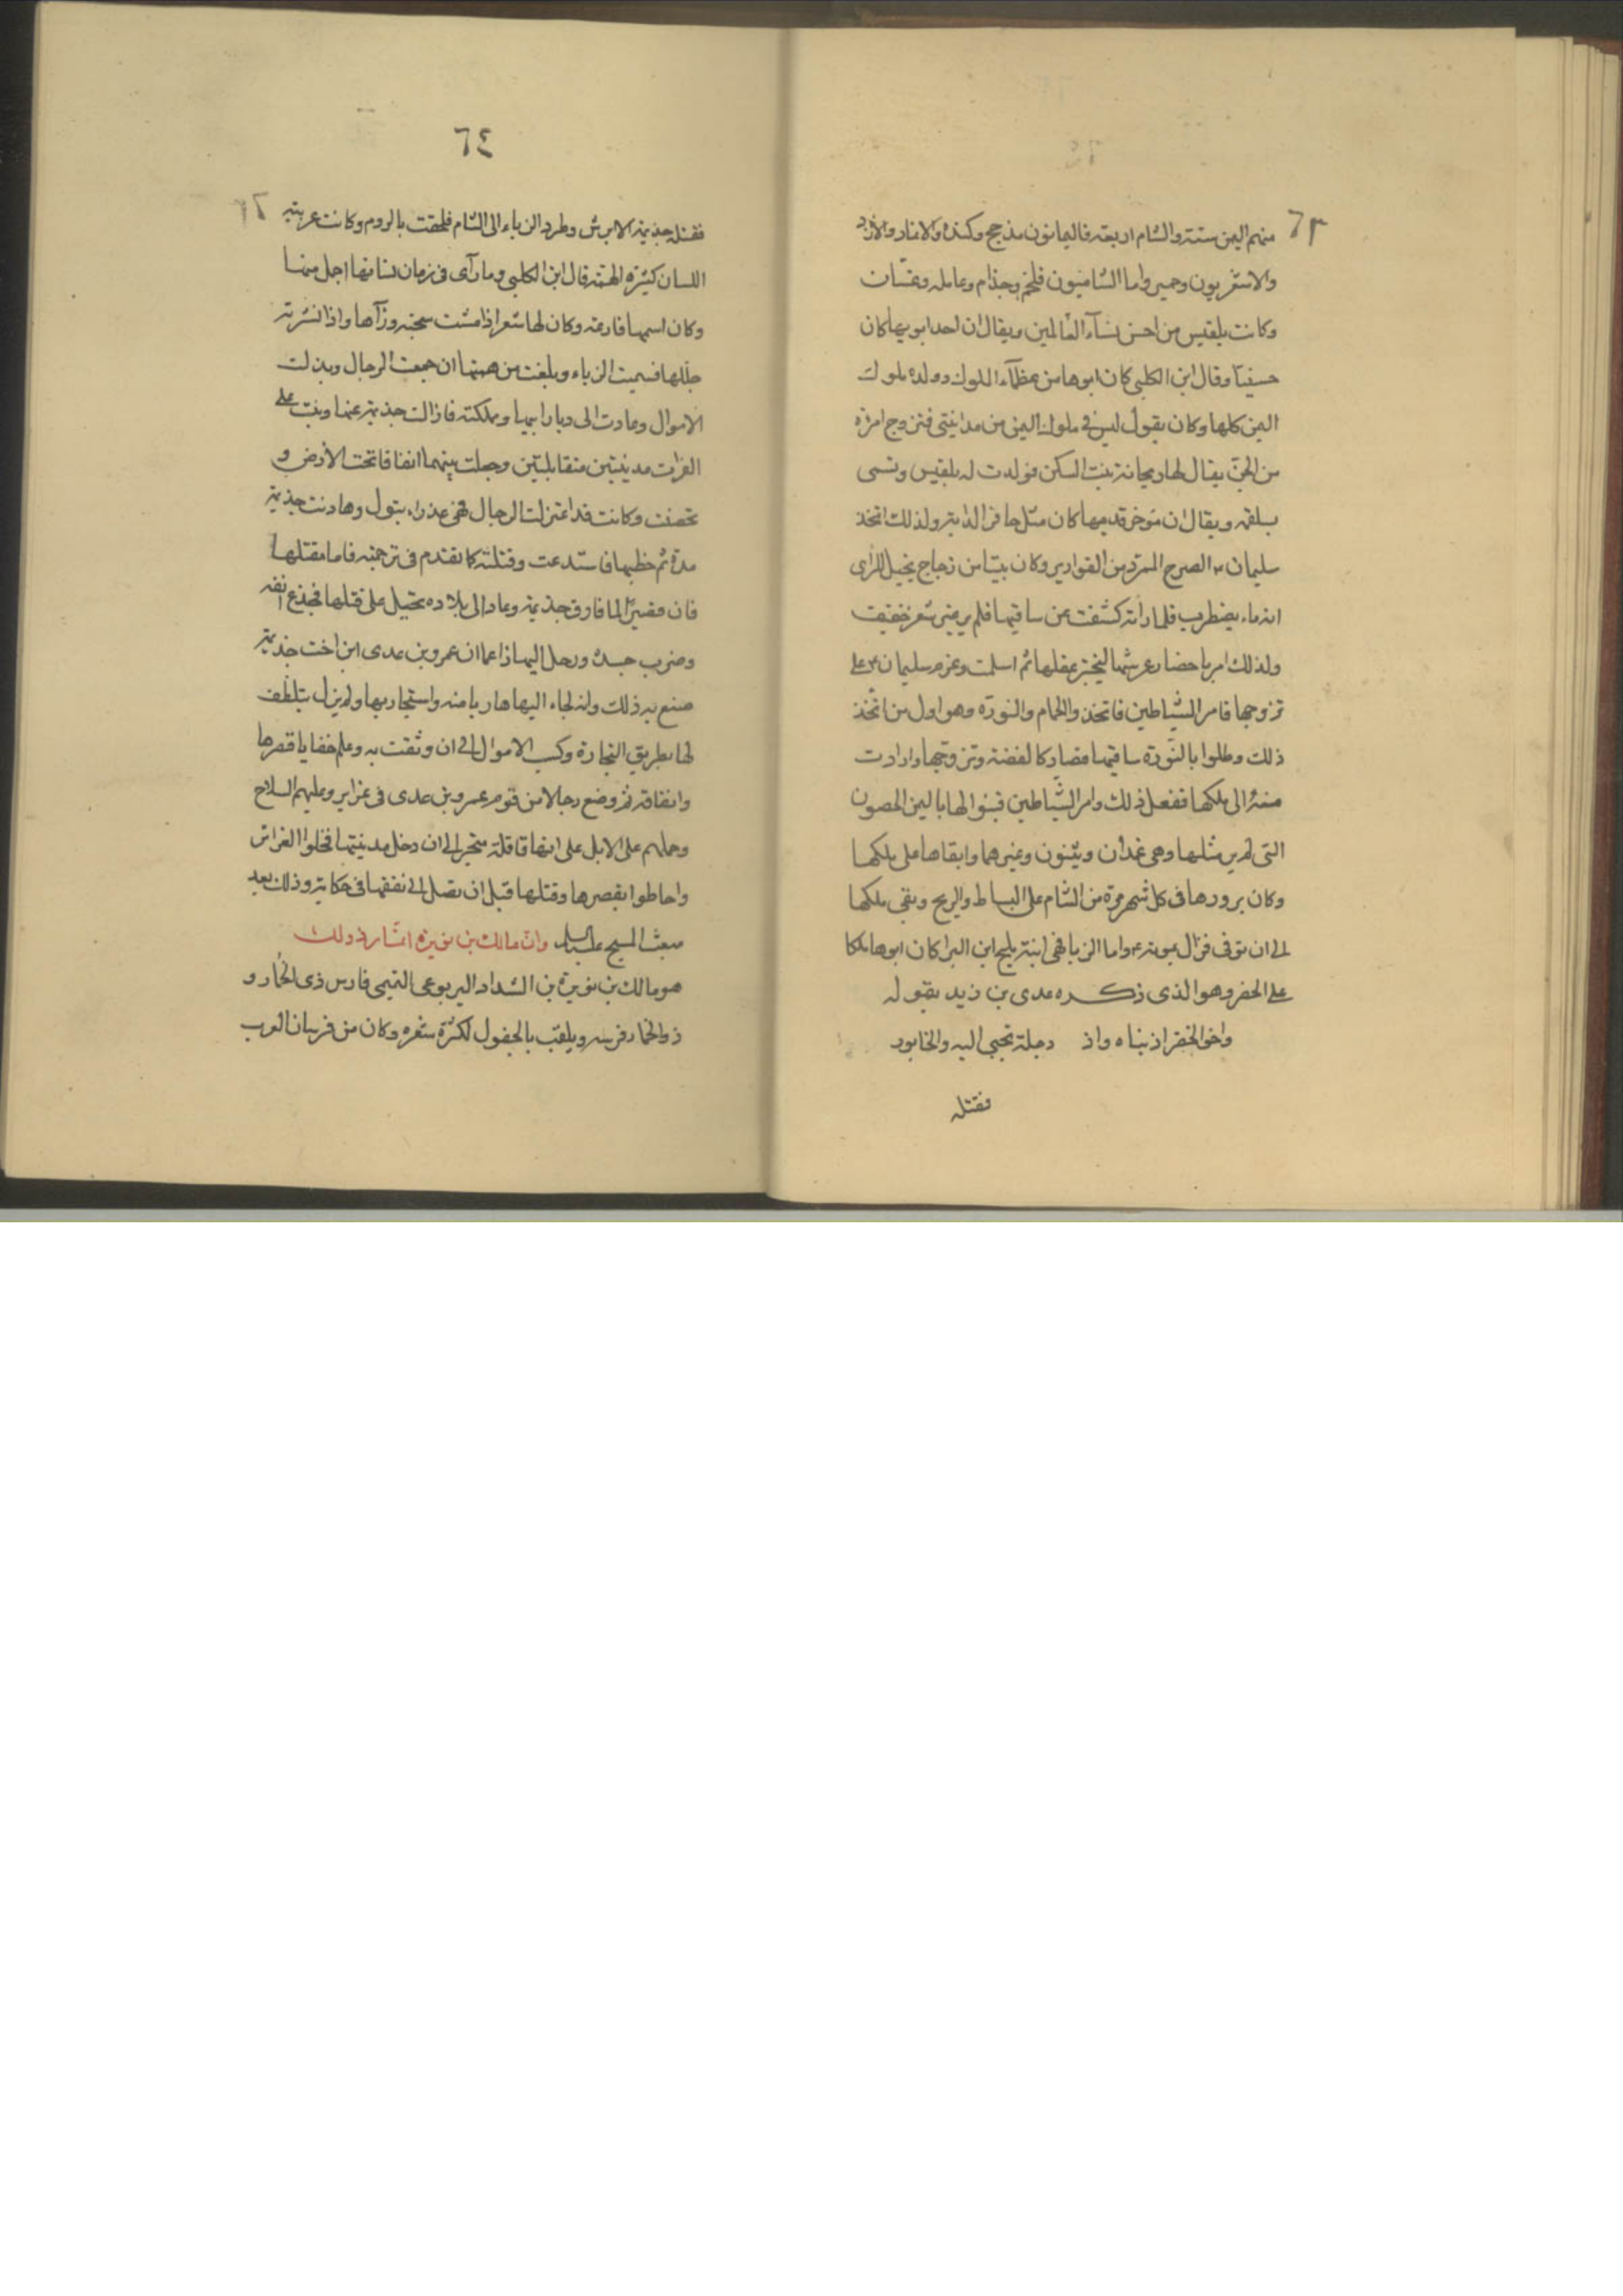 ٦٣
منهم اليمن ستة والشام اربعة فاليمانون مذحج وكندة والانمار والازد
والاشعريون وحمير واما الشاميون فلخم وجذام وعامله وغسّان
وكانت بلقيس من احسن نسآء العالمين ويقال ان احد ابويها كان
جنيا وقال ابن الكلبى كان ابوها من عظمآء الملوك وولده ملوك
اليمن كلها وكان يقول ليس فى ملوك اليمن من يدانينى فتزوج امرءة
من الجنّ يقال لها ريحانة بنت السكن فولدت له بلقيس وتسمى
بلقمه ويقال ان مؤخر قدميها كان مثل حافر الدابة ولذلك اتخذ
سليمان الصرح الممرد من القوارير وكان بيتا من زجاج يخيل للرأى
انه ماء يضطرب فلما راته كشفت عن ساقيها فلم ير غير شعر خفيف
ولذلك امر باحضار عرشها ليختبر عقلها ثم اسلمت وعزم سليمان على
تزوجها فامر الشياطين فاتخذوا الحمام والنورة وهو اول من اتخذ
ذلك وطلوا بالنورة ساقيها فصار كالفضة وتزوجها وارادت
منه الى ملكها ففعل ذلك وامر الشياطين فبنوا لها باليمن الحصون
التى لم ير مثلها وهى غمدان وبينون وغيرهما وابقاها على ملكها
وكان يزورها فى كل شهر مرة من الشام على البساط والريح وبقى ملكها
الى ان توفى فزال بموته واما الزبا فهى ابنة مليح ابن البرا كان ابوها ملكا
على الحضر وهو الذى ذكره عدى بن زيد بقوله
واخو الحضر اذ بناه واذ دجلة تجبى اليه والخابور
فقتله
٦٤
فقتله جذيمة الابرش وطرد الزباء الى الشام فلحقت بالروم وكانت عربية
اللسان كبيرة الهمة قال ابن الكلبى وما رآى فى زمان نسائها اجمل منها
وكان اسمها فارعة وكان لها شعر اذا مشت سحبته ورآها واذا نشرته
جللها فسميت الزباء وبلغت من همتها ان جمعت الرجال وبذلت
الاموال وعادت الى ديار ابيها ومملكته فازالت جذيمة عنها وبنت على
الفرات مدينتين متقابلتين وجعلت بينهما انفاقا تحت الارض و
تحصنت وكانت قد اعتزلت الرجال فهى عذراء بتول وهادنت جذيمة
مدة ثم خطبها فاستدعت وقتلته كما تقدم فى ترجمته فاما مقتلها
فان قصيرًا لما فارق جذيمة وعاد الى بلاده تحيل على قتلها فجذع انفه
وضرب جسده ورحل اليها زاعما ان عمرو بن عدى ابن اخت جذيمة
صنع به ذلك وانه لجاء اليها هاربا منه واستجار بها ولم يزل يتلطف
لها بطريق التجارة وكسب الاموال الى ان وثقت به وعلم خفايا قصرها
وانفاقه ثم وضع رجالا من قوم عمرو بن عدى فى غراير وعليهم السلاح
وحملهم على الابل على انها قافلة متجر الى ان دخل مدينتها فحلوا الغرائر
واحاطوا بقصرها وقتلها قبل ان تصل الى نفقها فى حكاية وذلك بعد
مبعث المسيح عليه السلام وانّ مالك بن نويرة
هو مالك بن نويرة بن الشداد اليربوعى التيمى فارس ذى الخمار و
ذو الخمار فرسه ويلقب بالجفول لكثرة شعره وكان من فرسان العرب